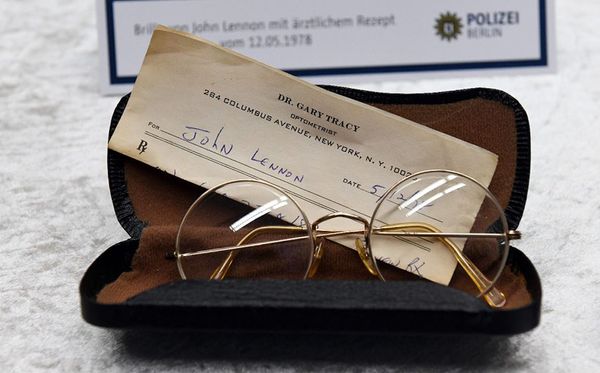 Brille von John Lennon mit ärztlichem Rezept
vom 12.05.1978
POLIZEI
BERLIN
DR. GARY TRACY
OPTOMETRIST
284 COLUMBUS AVENUE, NEW YORK, N. Y.
FOR JOHN LENNON
DATE 5/12/
℞
RX